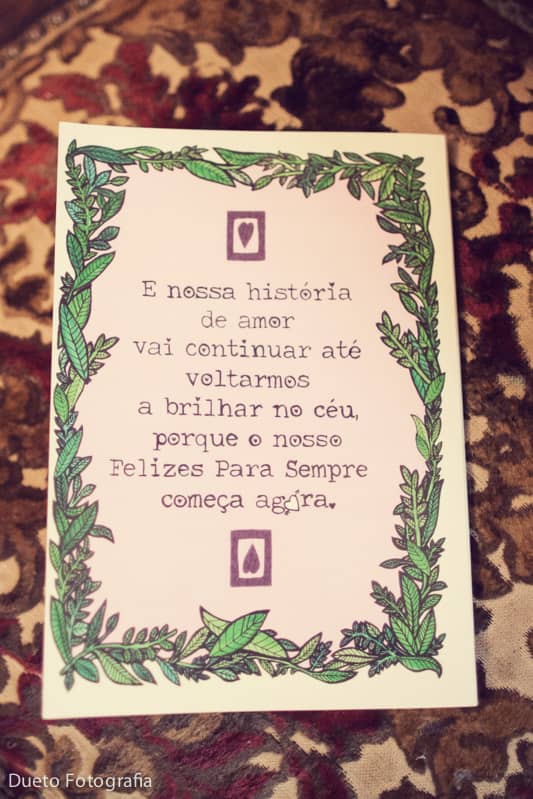 E nossa história
de amor
vai continuar até
voltarmos
a brilhar no céu,
porque o nosso
Felizes Para Sempre
começa agora.
Dueto Fotografia